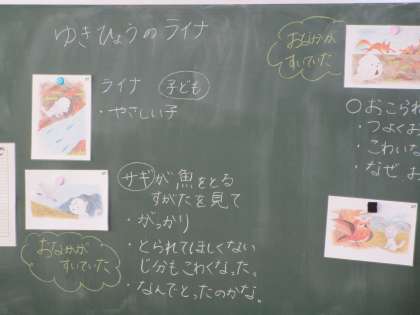 ゆきひょうのライナ
ライナ 子ども
・やさしい子
サギが魚をとる
すがたを見て
・がっかり
・とられてほしくない
じ分もこわくなった。
・なんでとったのかな。
おなかが
すいていた
おなかが
すいていた
○おこられ
・つよくお
・こわいな
・なぜ、お